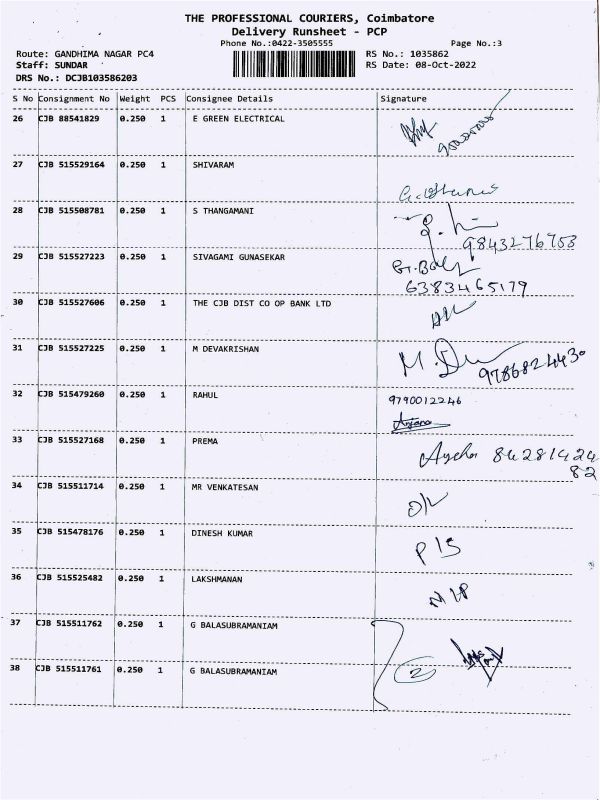 THE PROFESSIONAL COURIERS, Coimbatore
Delivery Runsheet - PCP
Phone No.:0422-3505555 Page No.:3
Route: GANDHIMA NAGAR PC4 RS No.: 1035862
Staff: SUNDAR RS Date: 08-Oct-2022
DRS No.: DCJB103586203
S No Consignment No Weight PCS Consignee Details Signature
26 CJB 88541829 0.250 1 E GREEN ELECTRICAL
27 CJB 515529164 0.250 1 SHIVARAM
28 CJB 515508781 0.250 1 S THANGAMANI
9843276753
29 CJB 515527223 0.250 1 SIVAGAMI GUNASEKAR
6383465179
30 CJB 515527606 0.250 1 THE CJB DIST CO OP BANK LTD
31 CJB 515527225 0.250 1 M DEVAKRISHAN
9786824430
32 CJB 515479260 0.250 1 RAHUL 9790012246
Anjana
33 CJB 515527168 0.250 1 PREMA
84281424
82
34 CJB 515511714 0.250 1 MR VENKATESAN
35 CJB 515478176 0.250 1 DINESH KUMAR
P/S
36 CJB 515525482 0.250 1 LAKSHMANAN
37 CJB 515511762 0.250 1 G BALASUBRAMANIAM
2
38 CJB 515511761 0.250 1 G BALASUBRAMANIAM